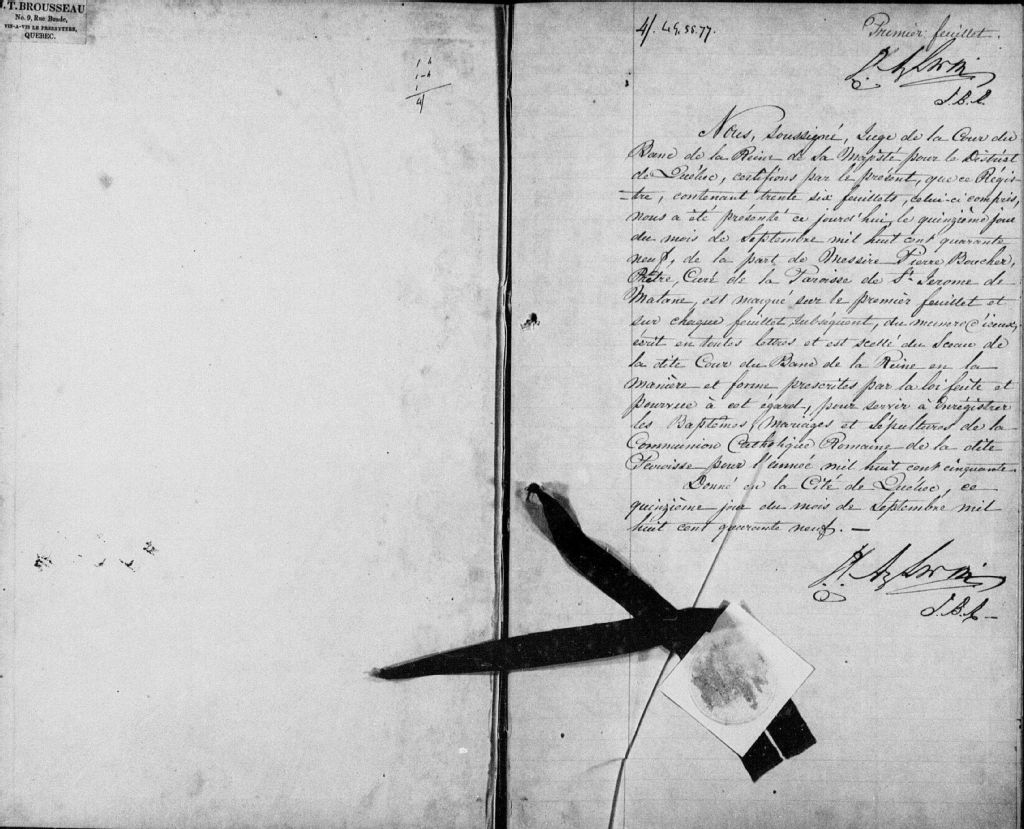 J.T. BROUSSEAU
No. 9, Rue Buade,
VIS-A-VIS LE PRESBYTERE,
QUEBEC.
4/.
Premier feuillet.
J.B.R.
Nous, soussigné, Juge de la Cour du
Banc de la Reine de Sa Majesté pour le District
de Québec, certifions par le présent, que ce Régis-
-tre, contenant trente six feuillets, celui-ci compris,
nous a été présenté ce jourd'hui, le quinzième jour
du mois de Septembre mil huit cent quarante
neuf, de la part de Messire Pierre Boucher,
Prêtre, Curé de la Paroisse de St. Jerome de
Matane, est marqué sur le premier feuillet et
sur chaque feuillet subséquent, du numero d'iceux,
écrit en toutes lettres et est scellé du Sceau de
la dite Cour du Banc de la Reine en la
manière et forme prescrites par la loi faite et
pourvue à cet égard, pour servir à Enrégistrer
les Baptêmes, Mariages et Sépultures de la
Communion Catholique Romaine de la dite
Paroisse pour l'année mil huit cent cinquante.
Donné en la Cité de Québec, ce
quinzième jour du mois de Septembre mil
huit cent quarante neuf. —
J.B.R. —